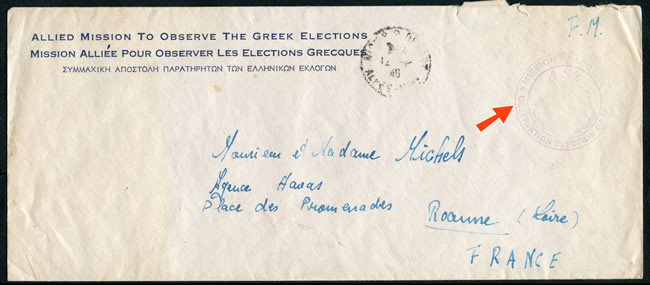 ALLIED MISSION TO OBSERVE THE GREEK ELECTIONS
MISSION ALLIÉE POUR OBSERVER LES ELECTIONS GRECQUES
ΣΥΜΜΑΧΙΚΗ ΑΠΟΣΤΟΛΗ ΠΑΡΑΤΗΡΗΤΩΝ ΤΩΝ ΕΛΛΗΝΙΚΩΝ ΕΚΛΟΓΩΝ
F.M.
46
ELECTION
Monsieur et Madame Michels
Agence Havas
Place des Promenades
Roanne (Loire)
FRANCE